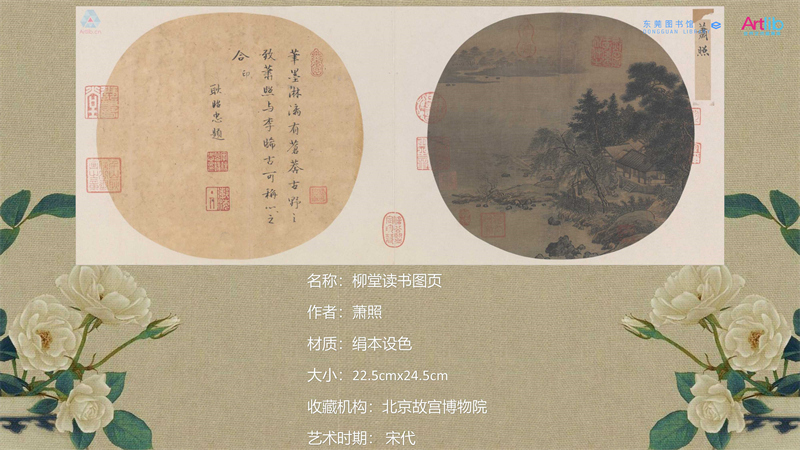 东莞图书馆
萧照
筆墨淋漓有蒼莽古野之
致蕭照与李晞古可称心之
合
耿昭忠題
名称：柳堂读书图页
作者：萧照
材质：绢本设色
大小：22.5cmx24.5cm
收藏机构：北京故宫博物院
艺术时期： 宋代